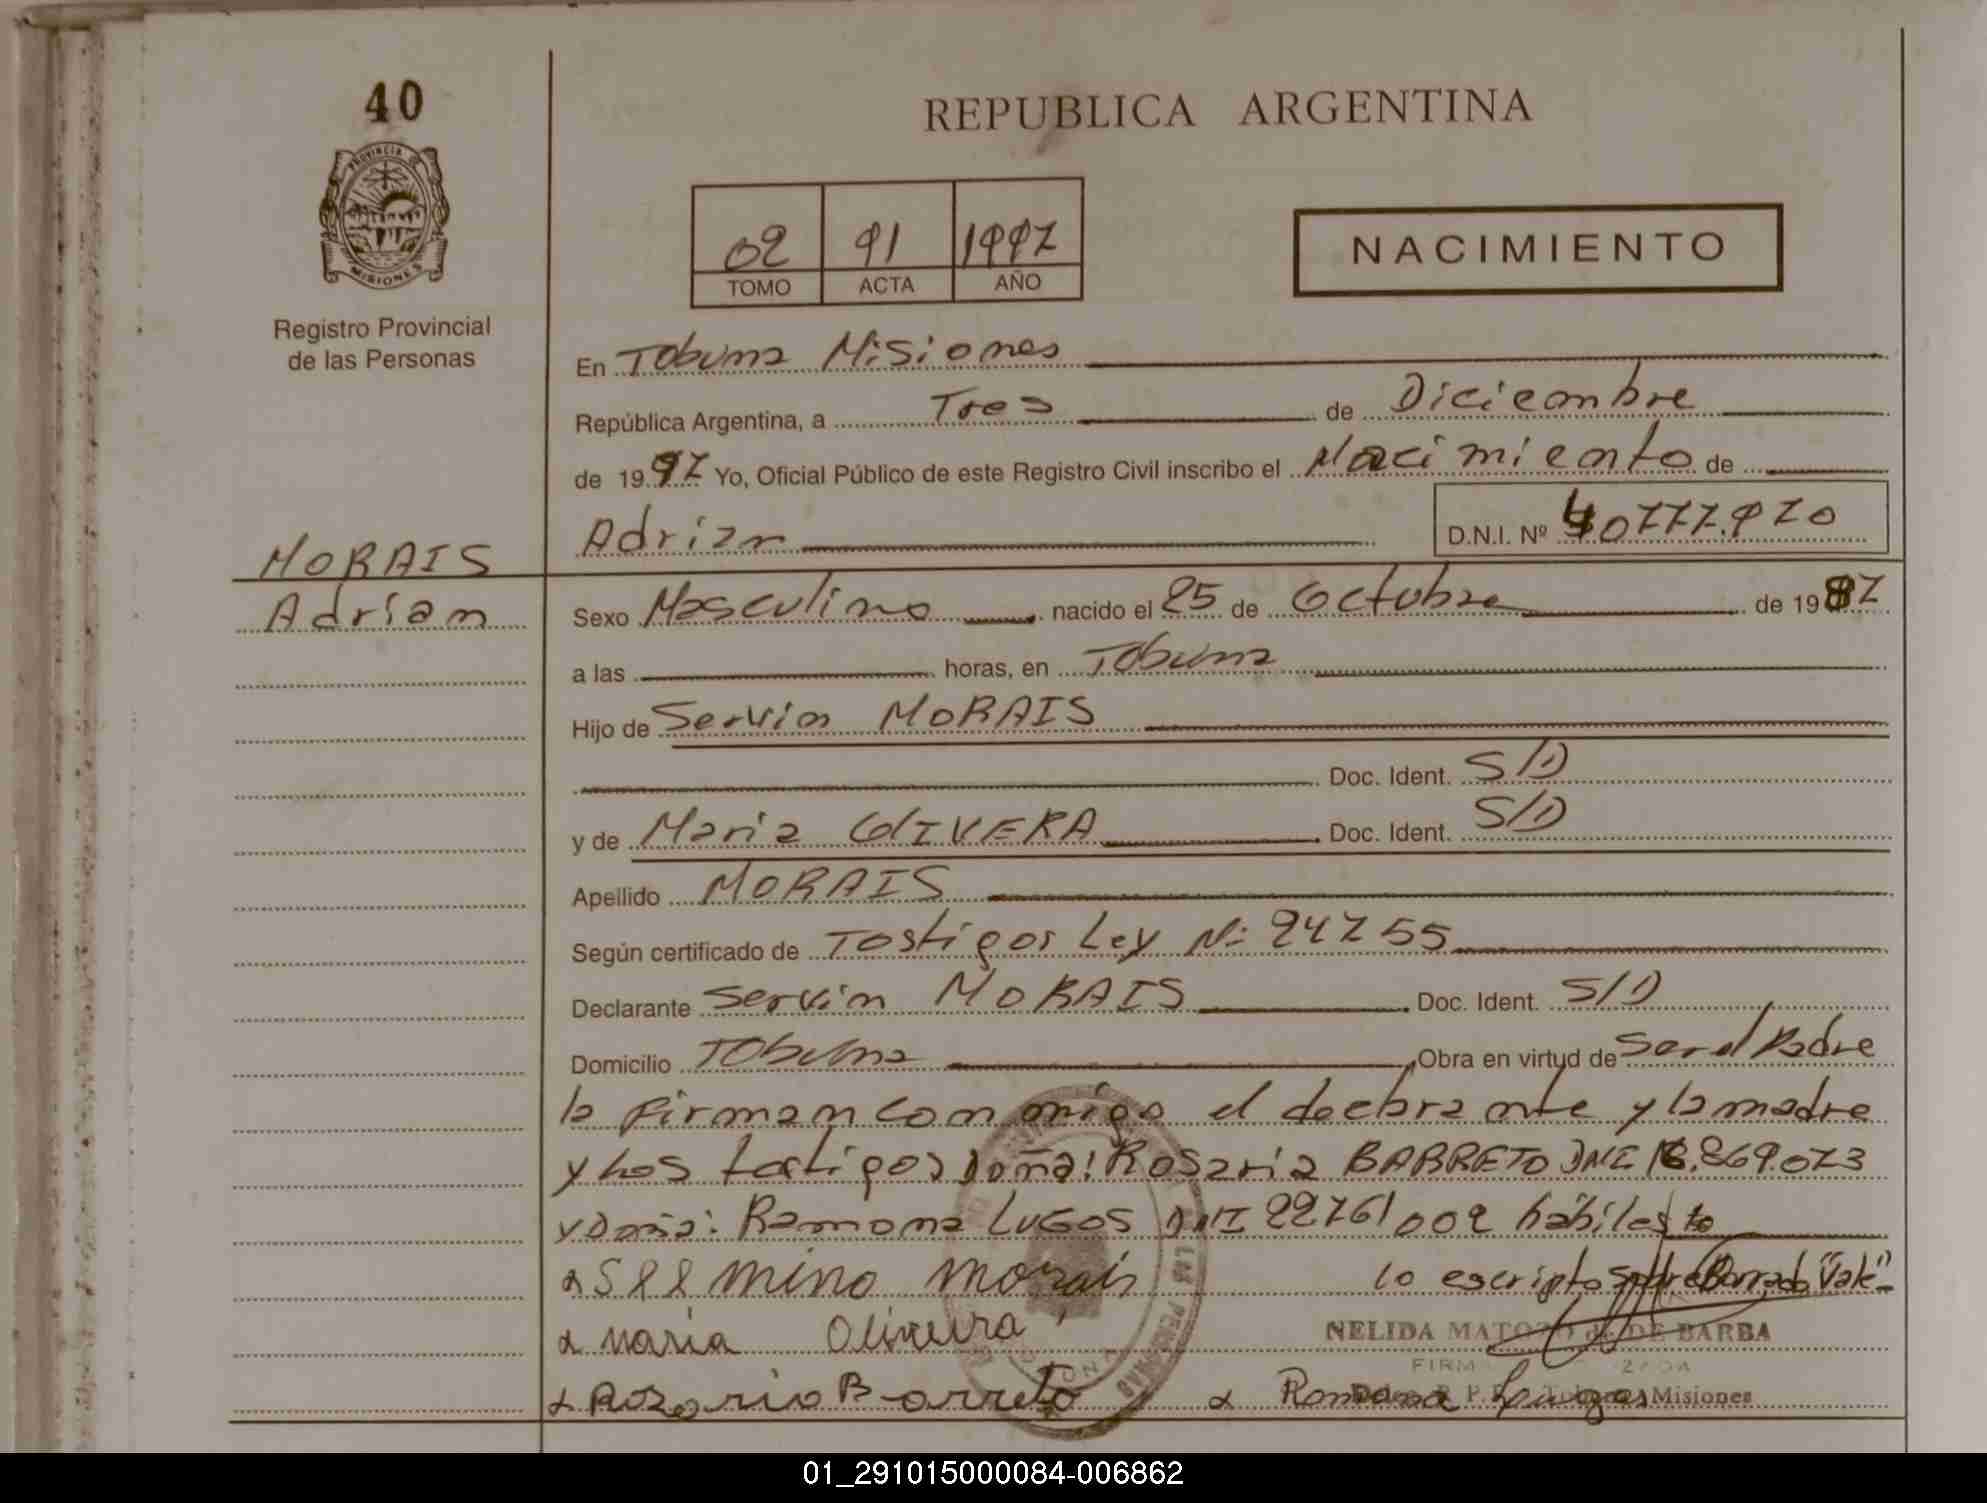 40
REPUBLICA ARGENTINA
PROVINCIA DE
MISIONES
Registro Provincial
de las Personas
02 91 1997
TOMO ACTA AÑO
NACIMIENTO
En Tobuna Misiones
República Argentina, a Tres de Diciembre
de 1997 Yo, Oficial Público de este Registro Civil inscribo el Nacimiento de
Adrian D.N.I. Nº 40777.970
MORAIS
Adrian
Sexo Masculino nacido el 25 de Octubre de 1987
a las horas, en Tobuna
Hijo de Servin MORAIS
Doc. Ident. S/D
y de Maria OLIVERA Doc. Ident. S/D
Apellido MORAIS
Según certificado de Testigos Ley Nº 24755
Declarante Servin MORAIS Doc. Ident. S/D
Domicilio Tobuna Obra en virtud de Ser el Padre
la firman conmigo el declarante y la madre
y Los testigos Doña: Rosaria BARRETO DNI 16.869.073
y Doña: Ramona LUGOS DNI 22761002 habiles
mino morais lo escripto Sobre Borrado "Vale"
Maria Oliveira
NELIDA MATOZO de DE BARBA
Rosario Barreto Ramona Lugos
Misiones
01_291015000084-006862